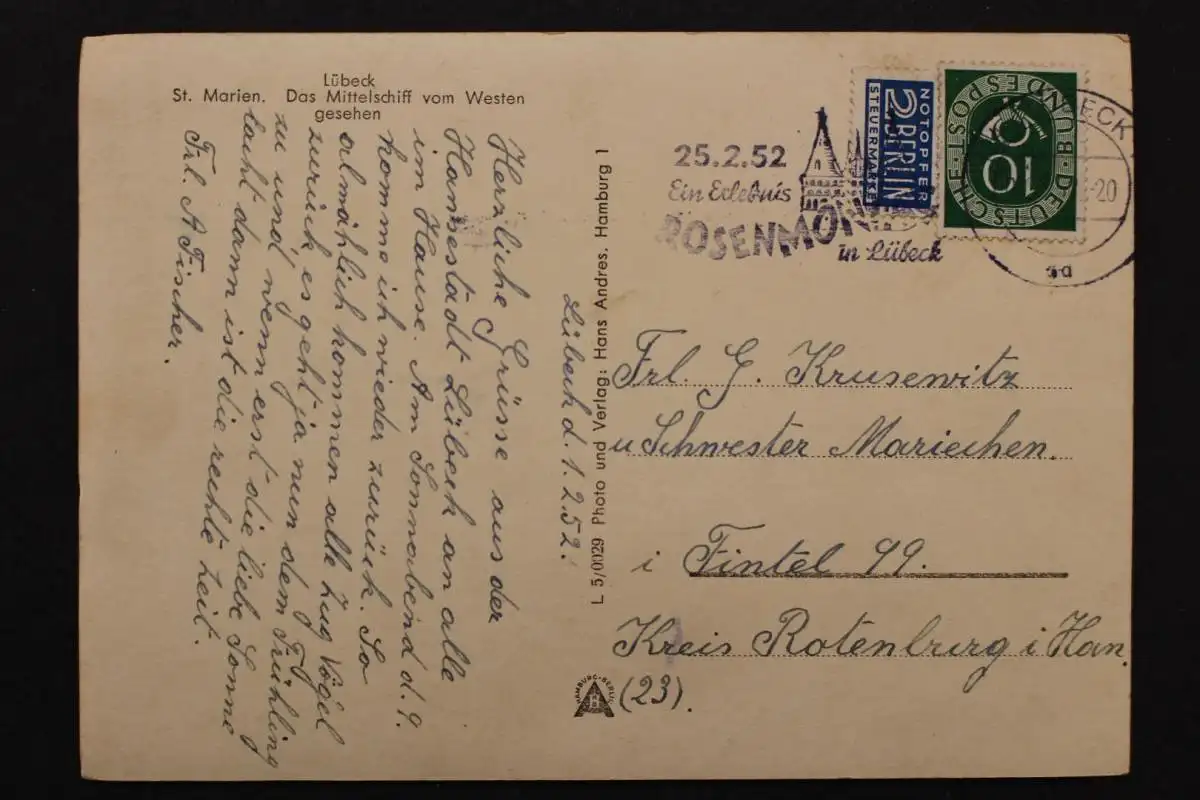 Lübeck
St. Marien. Das Mittelschiff vom Westen
gesehen
Herzliche Grüsse aus der
Hansestadt Lübeck an alle
im Hause. Am Sonnabend d. 9.
komme ich wieder zurück. So
almählich kommen alle Zug Vögel
zurück es geht ja nun dem Frühling
zu und, wenn erst die liebe Sonne
lacht dann ist die rechte Zeit.
Frl. A Fischer.
Lübeck d. 1.2.52.
L 5/0029 Photo und Verlag: Hans Andres. Hamburg 1
25.2.52
Ein Erlebnis
ROSENMON
in Lübeck
NOTOPFER
2 BERLIN
STEUERMARKE
DEUTSCHE BUNDESPOST
10
BECK
-20
Frl. G. Krusewitz
u Schwester Mariechen.
i Fintel 99.
Kreis Rotenburg i Han.
(23).
HAMBURG-BERLIN